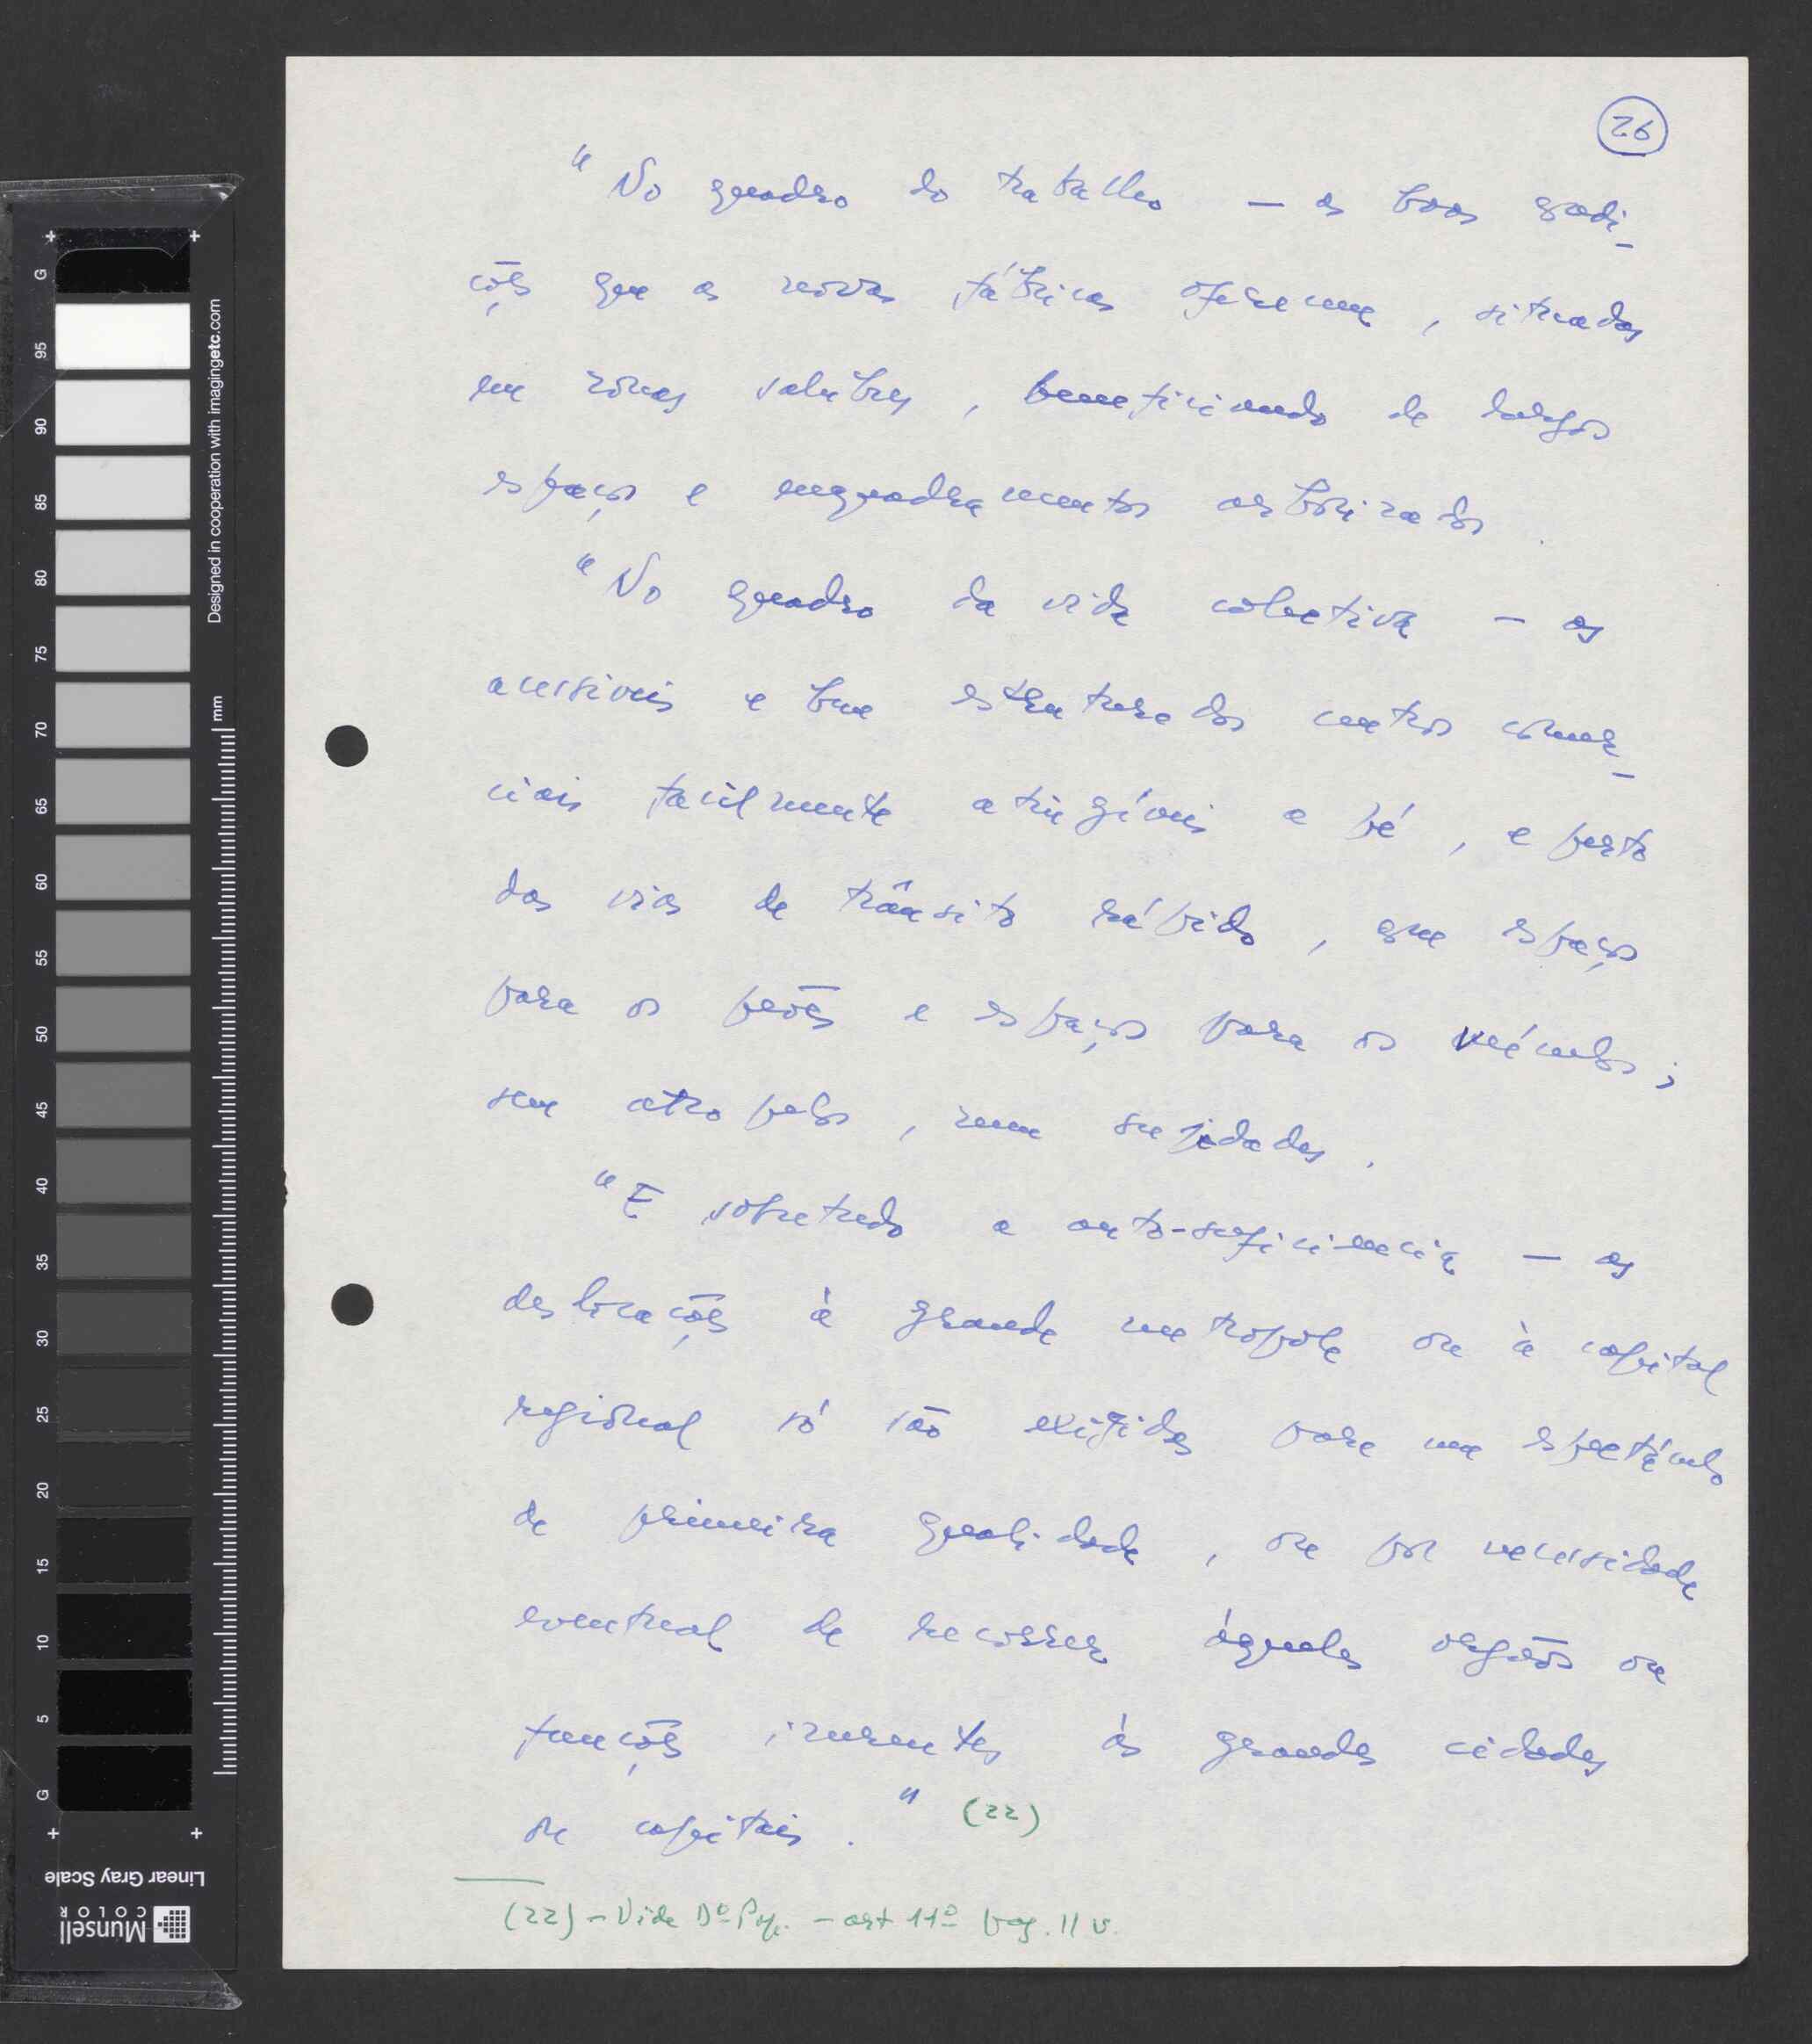 26
" No quadro do trabalho — as boas condi-
ções que as novas fábricas oferecem, situadas
em zonas salubres, beneficiando de largos
espaços e enquadramentos arborizados.
" No quadro da vida colectiva — os
acessiveis e bem estruturados centros comer-
ciais facilmente atingíveis a pé, e perto
das vias de trânsito rápido, com espaços
para os peões e espaços para os veículos;
sem atropelos, sem sujidades.
" E sobretudo a auto-suficiencia — as
deslocações à grande metropole ou à capital
regional só são exigidas para um espectáculo
de primeira qualidade, ou por necessidade
eventual de recorrer àqueles orgãos ou
funções inerentes às grandes cidades
ou capitais. " (22)
(22) - Vide Dº - art 11º pag. 11 v.
G
95
90
85
80
75
70
65
60
55
50
45
40
35
30
25
20
15
10
5
G
mm
Designed in cooperation with imagingetc.com
Linear Gray Scale
Munsell
COLOR